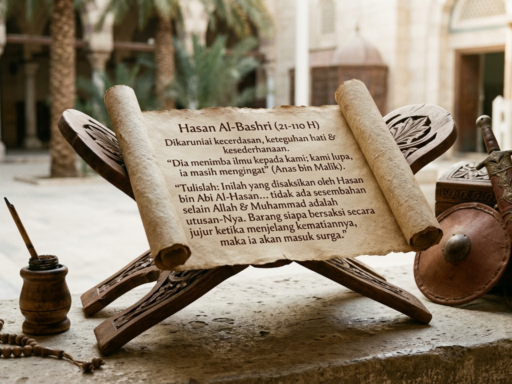 Hasan Al-Bashri (21-110 H)
Dikaruniai kecerdasan, keteguhan hati &
kesederhanaan.
"Dia menimba ilmu kepada kami; kami lupa,
ia masih mengingat" (Anas bin Malik).
"Tulislah: Inilah yang disaksikan oleh Hasan
bin Abi Al-Hasan... tidak ada sesembahan
selain Allah & Muhammad adalah
utusan-Nya. Barang siapa bersaksi secara
jujur ketika menjelang kematiannya,
maka ia akan masuk surga."